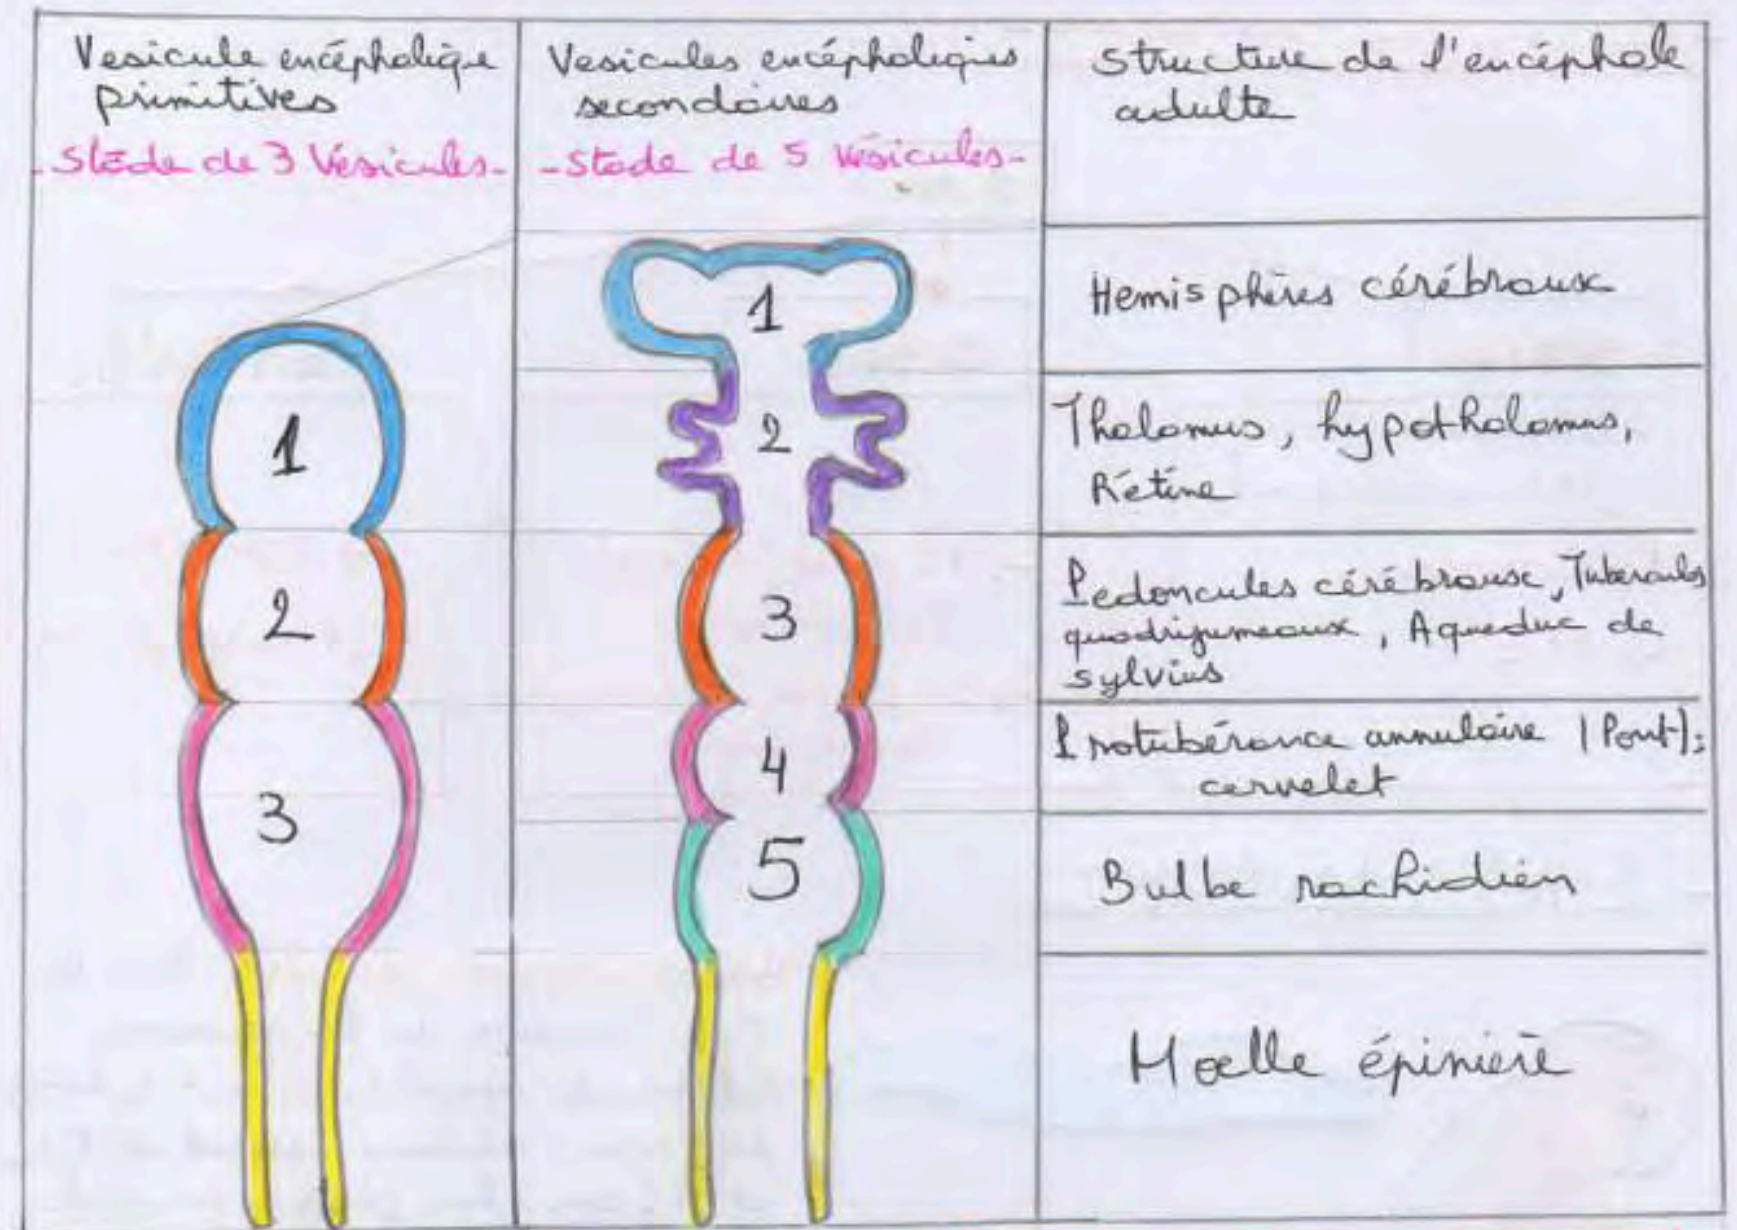 Vesicule encéphalique
primitives
- Stade de 3 Vésicules -
Vesicules encéphaliques
secondaires
- Stade de 5 Vésicules -
Structure de l'encéphale
adulte
1
2
3
1
2
3
4
5
Hemisphères cérébraux
Thalamus, hypothalamus,
Rétine
Pedoncules cérébraux, Tubercules
quadrijumeaux, Aqueduc de
sylvius
Protubérance annulaire (Pont);
cervelet
Bulbe rachidien
Moelle épinière